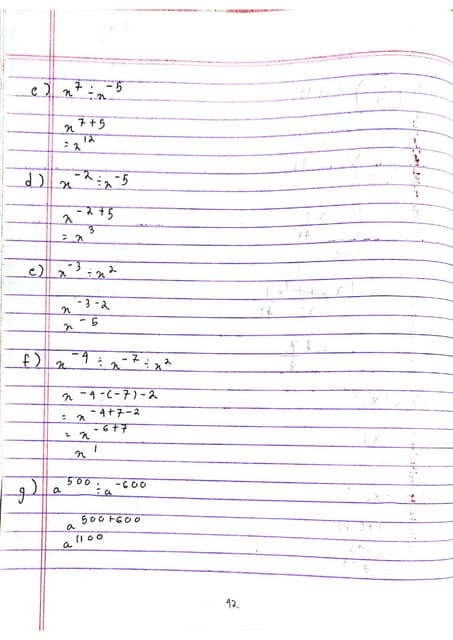 c) x⁷ ÷ x⁻⁵
x⁷⁺⁵
= x¹²
d) x⁻² ÷ x⁻⁵
x⁻²⁺⁵
= x³
e) x⁻³ ÷ x²
x⁻³⁻²
x⁻⁵
f) x⁻⁴ ÷ x⁻⁷ ÷ x²
x⁻⁴⁻⁽⁻⁷⁾⁻²
= x⁻⁴⁺⁷⁻²
= x⁻⁶⁺⁷
x¹
g) a⁵⁰⁰ ÷ a⁻⁶⁰⁰
a⁵⁰⁰⁺⁶⁰⁰
a¹¹⁰⁰
92